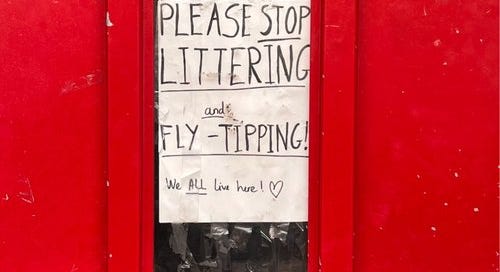 PLEASE STOP
LITTERING
and
FLY-TIPPING!
We ALL live here! ♡